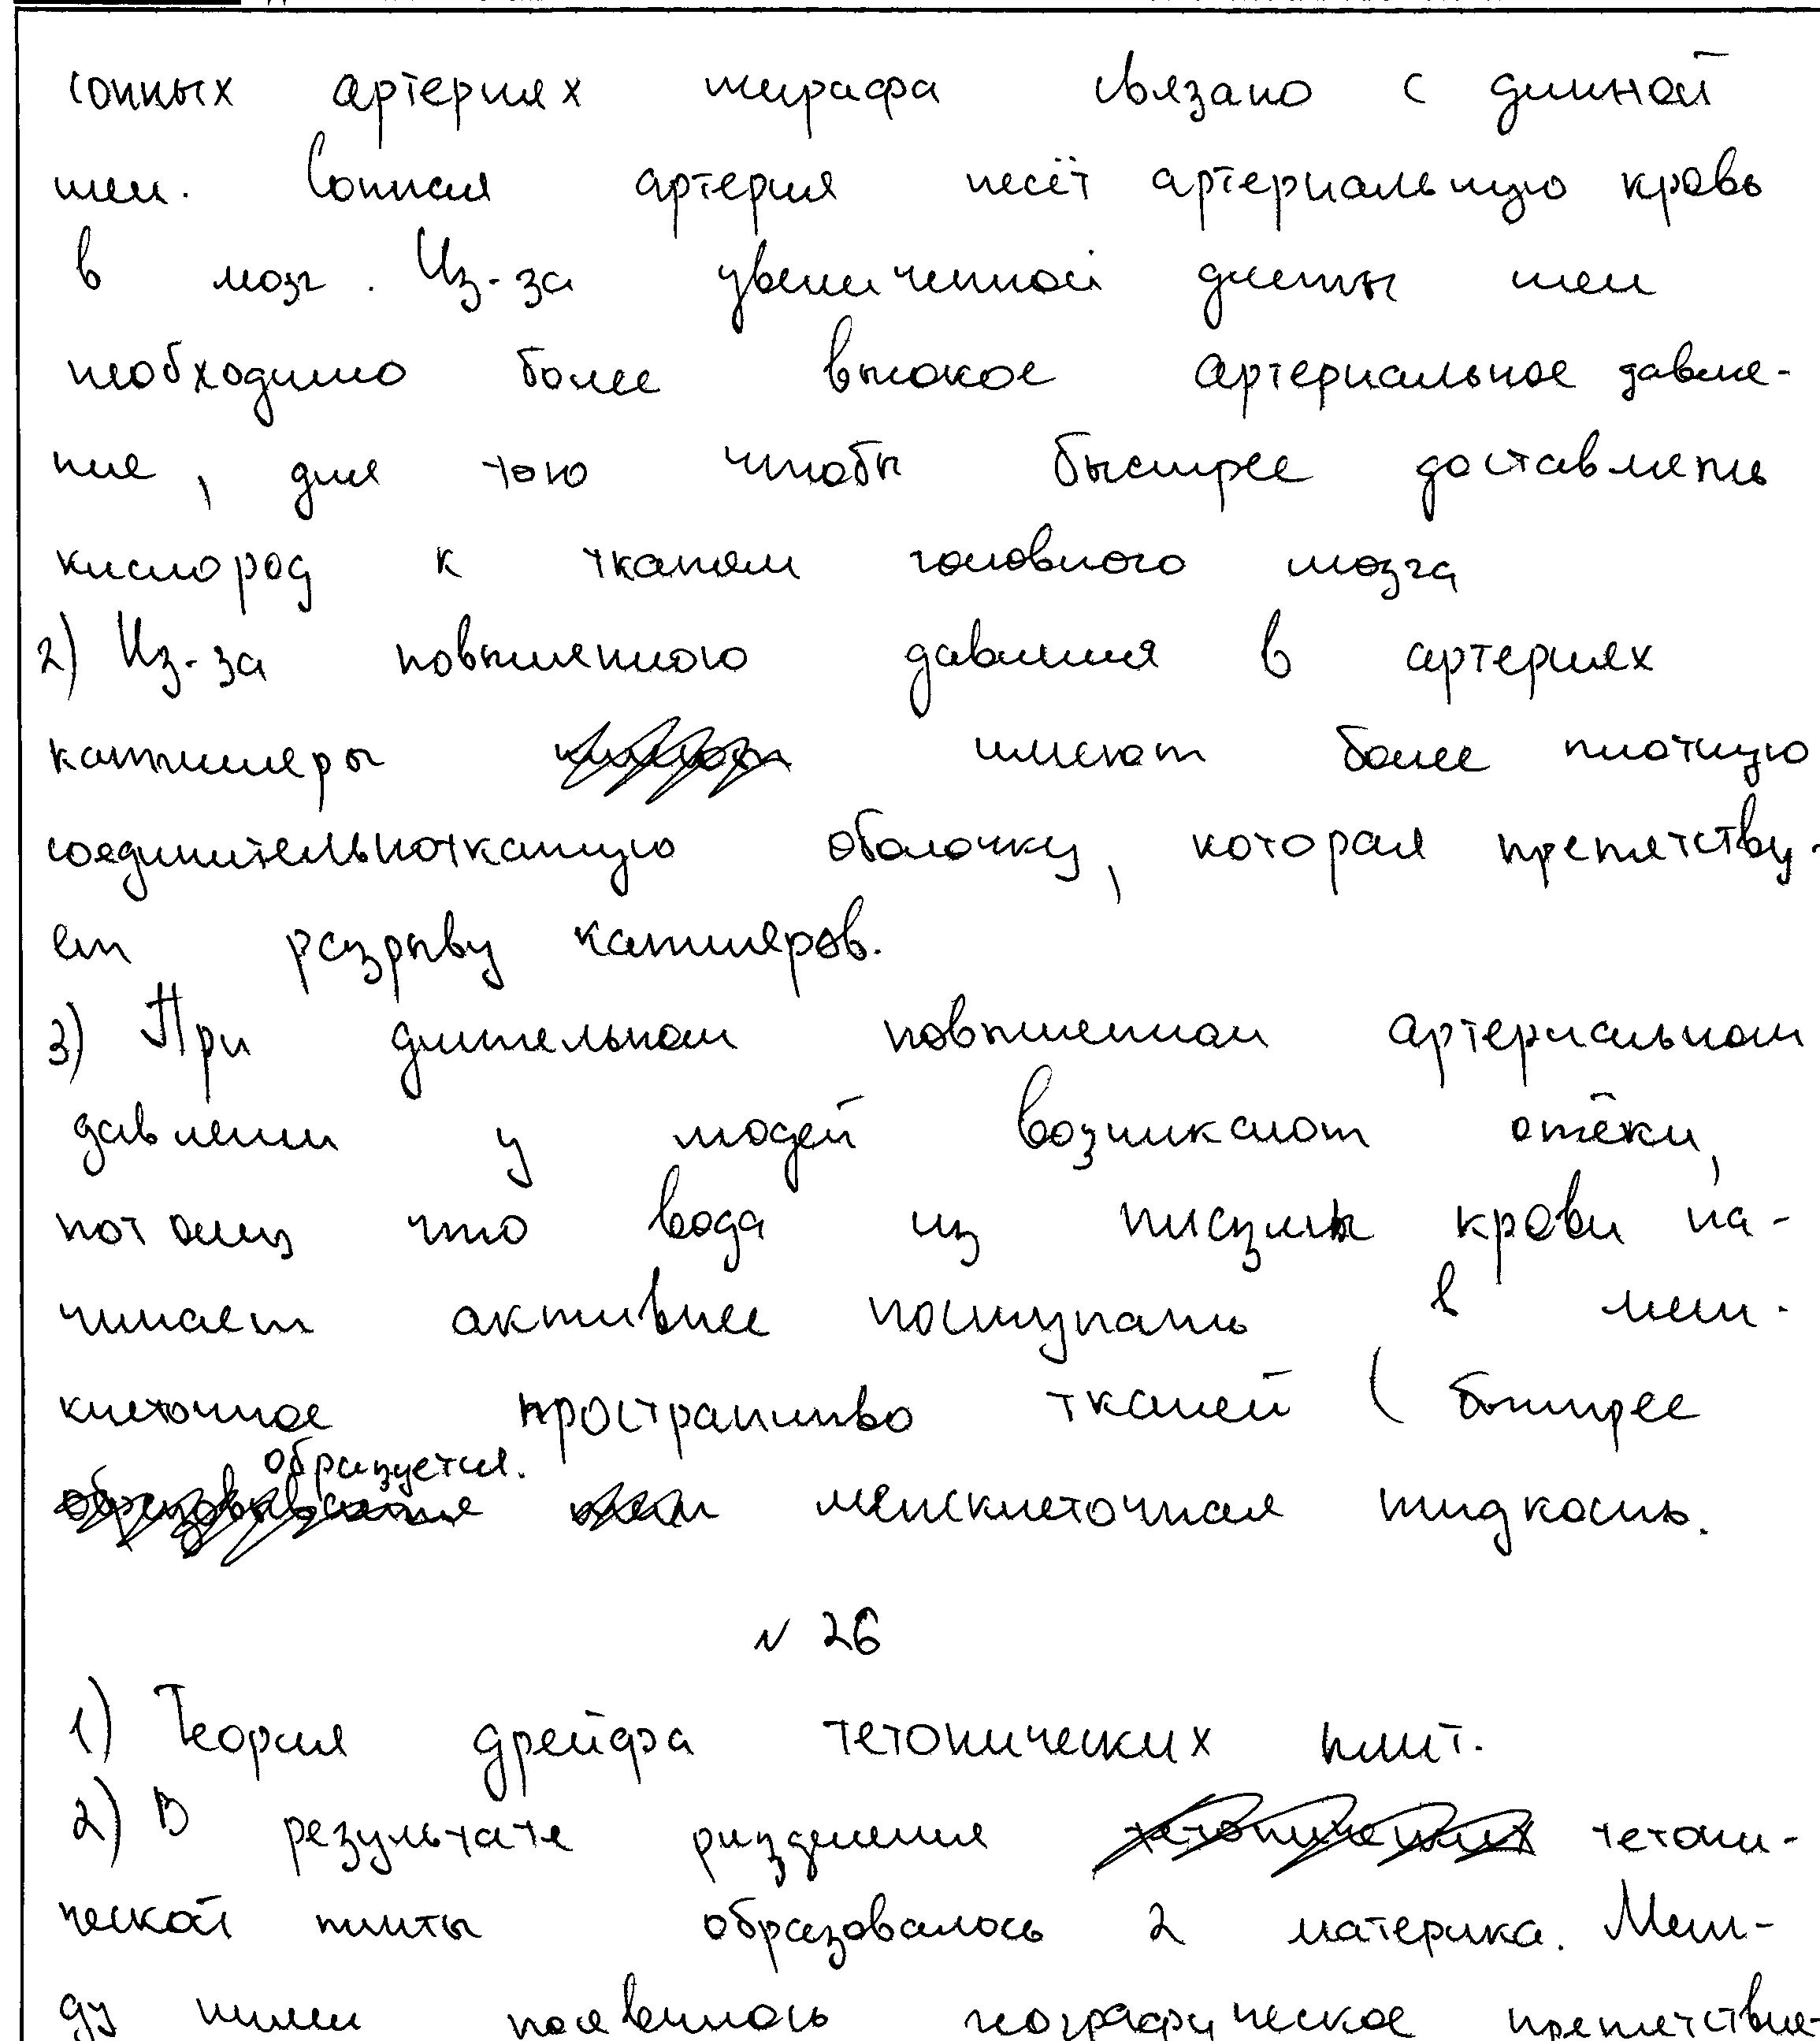 сонных артериях жирафа связано с длинной
шеи. Сонная артерия несёт артериальную кровь
в мозг. Из-за увеличенной длины шеи
необходимо более высокое артериальное давле-
ние, для того чтобы быстрее доставлять
кислород к тканям головного мозга
2) Из-за повышенного давления в артериях
капилляры имеют более плотную
соединительноткануую оболочку, которая препятству-
ет разрыву капиляров.
3) При длительном повышенном артериальном
давлении у людей возникают отёки,
потому что вода из плазмы крови на-
чинает активнее поступать в меж-
клеточное пространство тканей (быстрее
образуется.
межклеточная жидкость.
№ 26
1) Теория дрейфа тетонических плит.
2) В результате разделения тетони-
ческой плиты образовалось 2 материка. Меж-
ду ними появилось географическое препятствие-